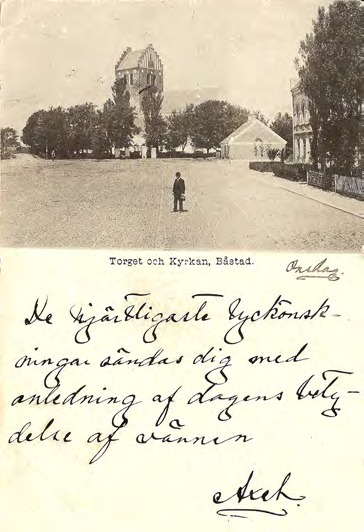 Torget och Kyrkan, Båstad.
Onsdag.
De hjärtligaste lyckönsk-
ningar sändas dig med
anledning af dagens bety-
delse af vännen
Axel.